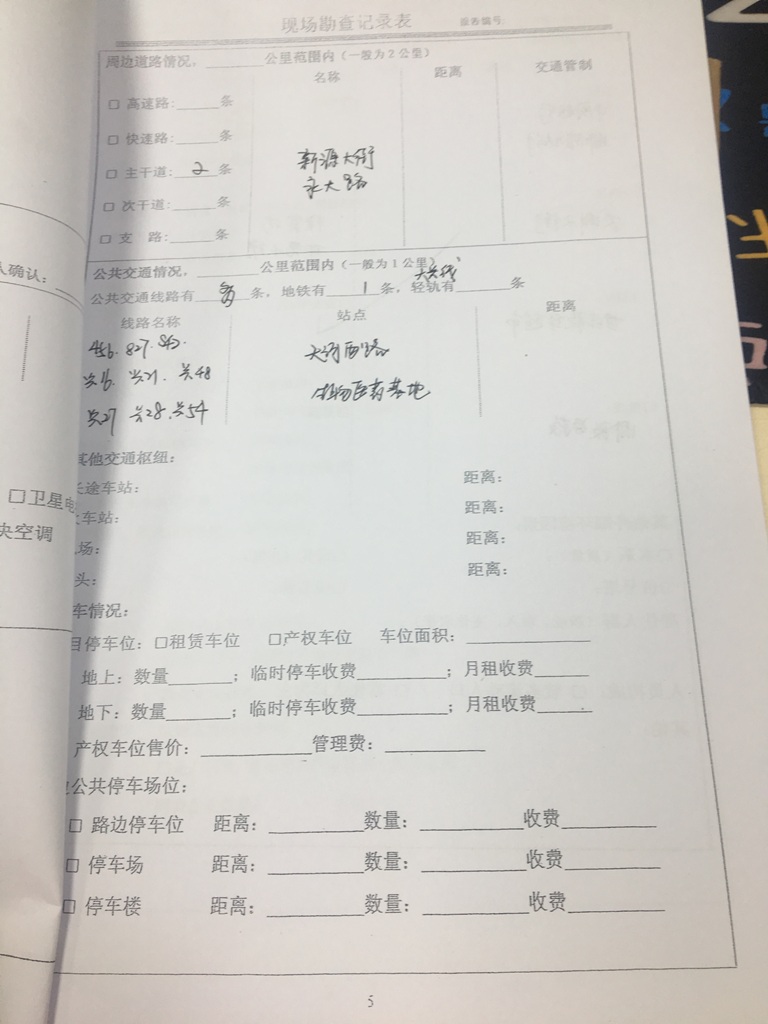 现场勘查记录表 报告编号:
周边道路情况，______公里范围内（一般为2公里）
名称 距离 交通管制
□ 高速路:____条
□ 快速路:____条
□ 主干道: 2 条
新源大街
永大路
□ 次干道:____条
□ 支 路:____条
公共交通情况，______公里范围内（一般为1公里）
大兴线
公共交通线路有 多 条，地铁有 1 条，轻轨有____条
线路名称 站点 距离
456. 827. 842.
兴16. 兴21. 兴48
兴27 兴28. 兴54
生物医药基地
其他交通枢纽：
途车站： 距离：
车站： 距离：
场： 距离：
头： 距离：
车情况：
目停车位：□租赁车位 □产权车位 车位面积：__________
地上：数量______；临时停车收费________；月租收费_____
地下：数量______；临时停车收费________；月租收费_____
产权车位售价：__________管理费：_________
公共停车场位：
□ 路边停车位 距离：________数量：_________收费________
□ 停车场 距离：________数量：_________收费________
□ 停车楼 距离：________数量：_________收费________
5
人确认：
□卫星电
央空调